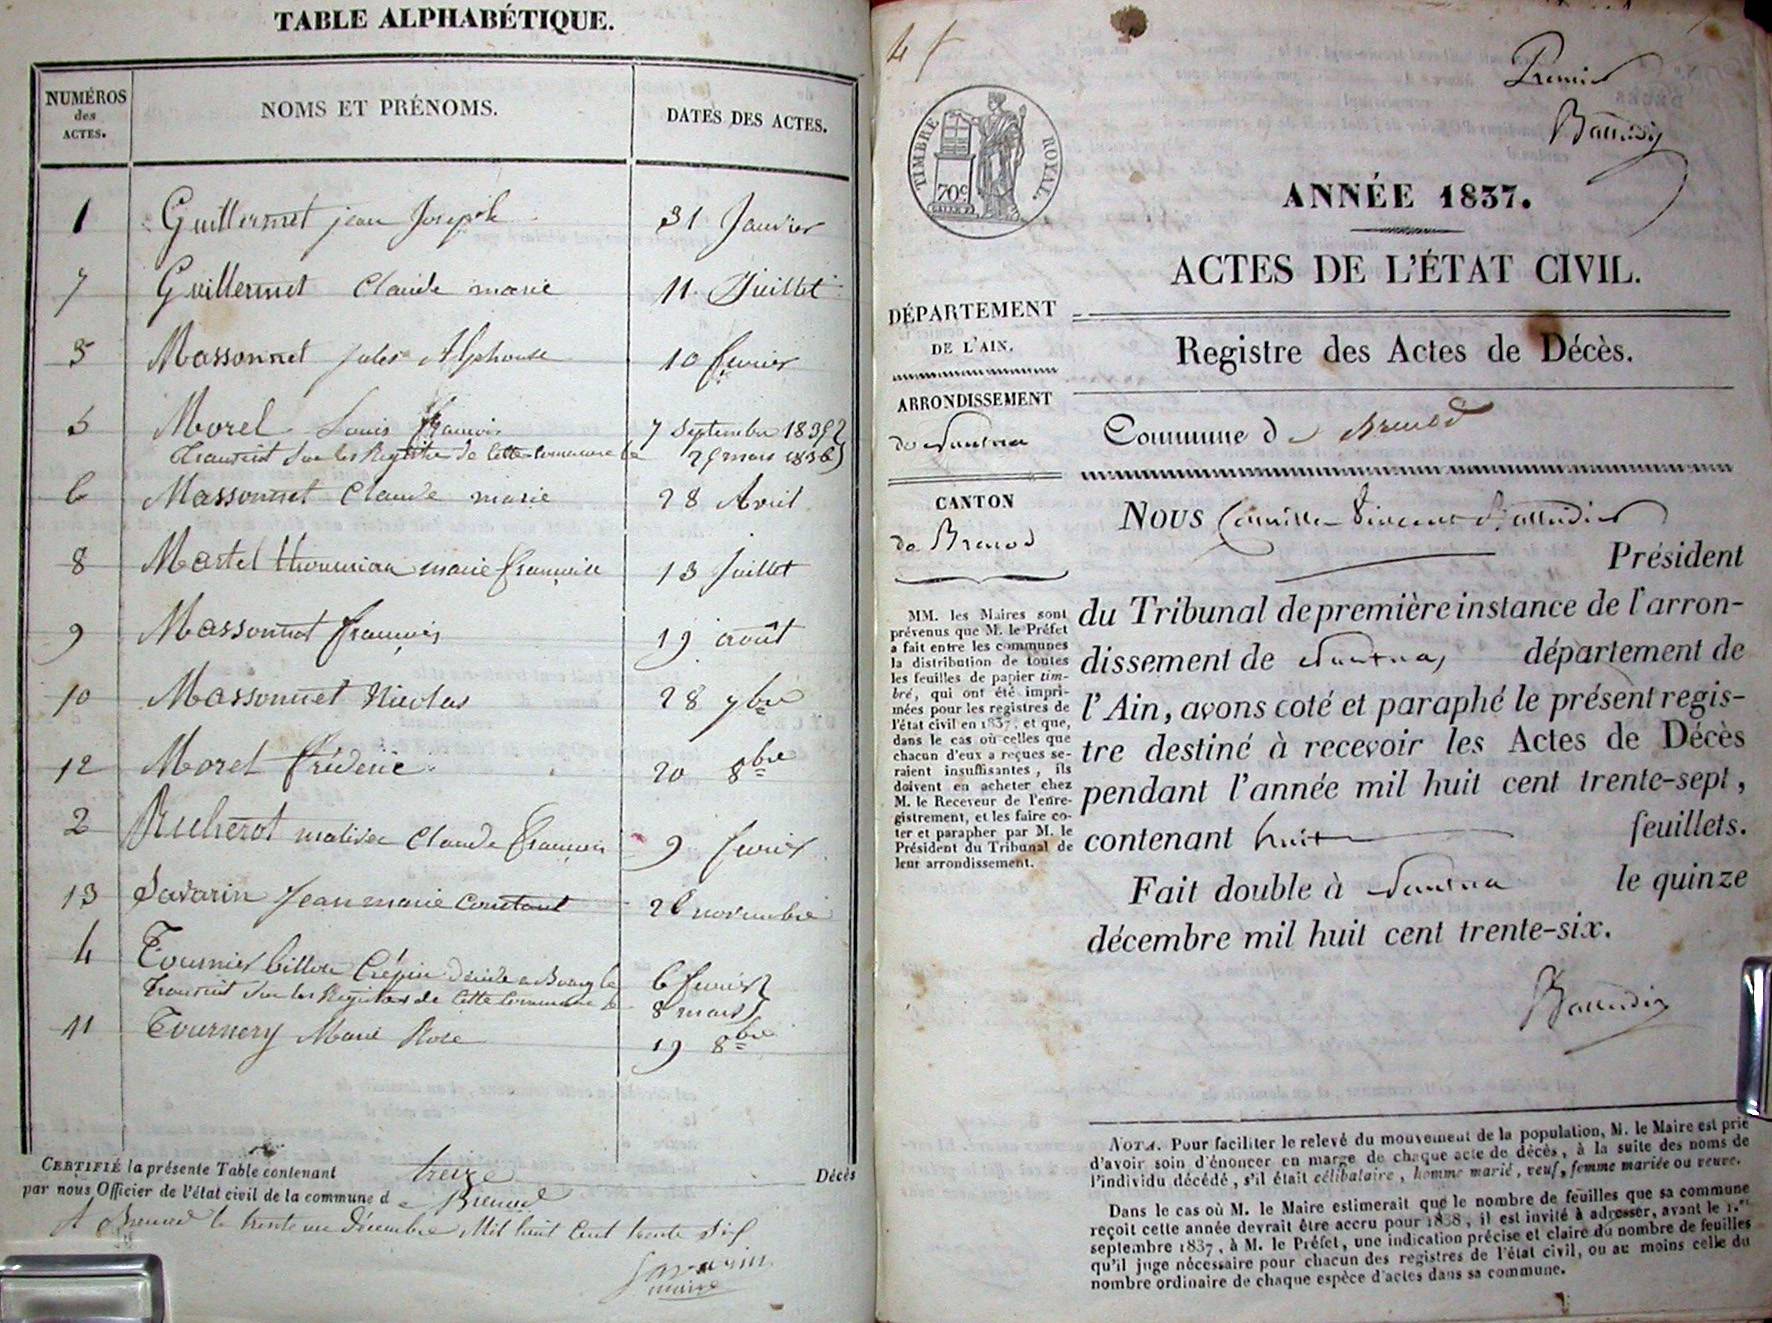 TABLE ALPHABÉTIQUE.
NUMÉROS
des
ACTES.
NOMS ET PRÉNOMS.
DATES DES ACTES.
1 Guillermet jean Joseph 31 Janvier
7 Guillermet Claude marie 11 Juillet
3 Massonnet jules Alphonse 10 fevrier
5 Morel Louis françois 7 Septembre 1835
transcrit sur les Registre de Cette Commune le mars 1836
6 Massonnet Claude marie 28 Avril
8 Martel marie françoise 13 juillet
9 Massonnet françois 19 août
10 Massonnet Nicolas 28 7bre
12 Morel frédéric 20 8bre
2 Claude françois 9 fevrier
13 Savarin Jean marie Constant 26 novembre
4 Tournier billon Crépin décédé a Bourg le 6 fevrier
transcrit sur les Registres de Cette Commune le 8 mars
11 Tournery Marie Rose 19 8bre
CERTIFIÉ la présente Table contenant treize Décès
par nous Officier de l'état civil de la commune de Brenod
A Brenod le trente un décembre, Mil huit Cent trente Six
Savarin
maire
4 f
Premier
TIMBRE ROYAL.
70c
ANNÉE 1837.
ACTES DE L'ÉTAT CIVIL.
DÉPARTEMENT
DE L'AIN.
Registre des Actes de Décès.
ARRONDISSEMENT
de Nantua
Commune de Brenod
CANTON
de Brenod
NOUS Camille Vincent
Président
du Tribunal de première instance de l'arron-
dissement de Nantua, département de
l'Ain, avons coté et paraphé le présent regis-
tre destiné à recevoir les Actes de Décès
pendant l'année mil huit cent trente-sept,
contenant huit feuillets.
Fait double à Nantua le quinze
décembre mil huit cent trente-six.
MM. les Maires sont
prévenus que M. le Préfet
a fait entre les communes
la distribution de toutes
les feuilles de papier tim-
bré, qui ont été impri-
mées pour les registres de
l'état civil en 1837, et que,
dans le cas où celles que
chacun d'eux a reçues se-
raient insuffisantes, ils
doivent en acheter chez
M. le Receveur de l'enre-
gistrement, et les faire co-
ter et parapher par M. le
Président du Tribunal de
leur arrondissement.
NOTA. Pour faciliter le relevé du mouvement de la population, M. le Maire est prié
d'avoir soin d'énoncer en marge de chaque acte de décès, à la suite des noms de
l'individu décédé, s'il était célibataire, homme marié, veuf, femme mariée ou veuve.
Dans le cas où M. le Maire estimerait que le nombre de feuilles que sa commune
reçoit cette année devrait être accru pour 1838, il est invité à adresser, avant le 1.er
septembre 1837, à M. le Préfet, une indication précise et claire du nombre de feuilles
qu'il juge nécessaire pour chacun des registres de l'état civil, ou au moins celle du
nombre ordinaire de chaque espèce d'actes dans sa commune.